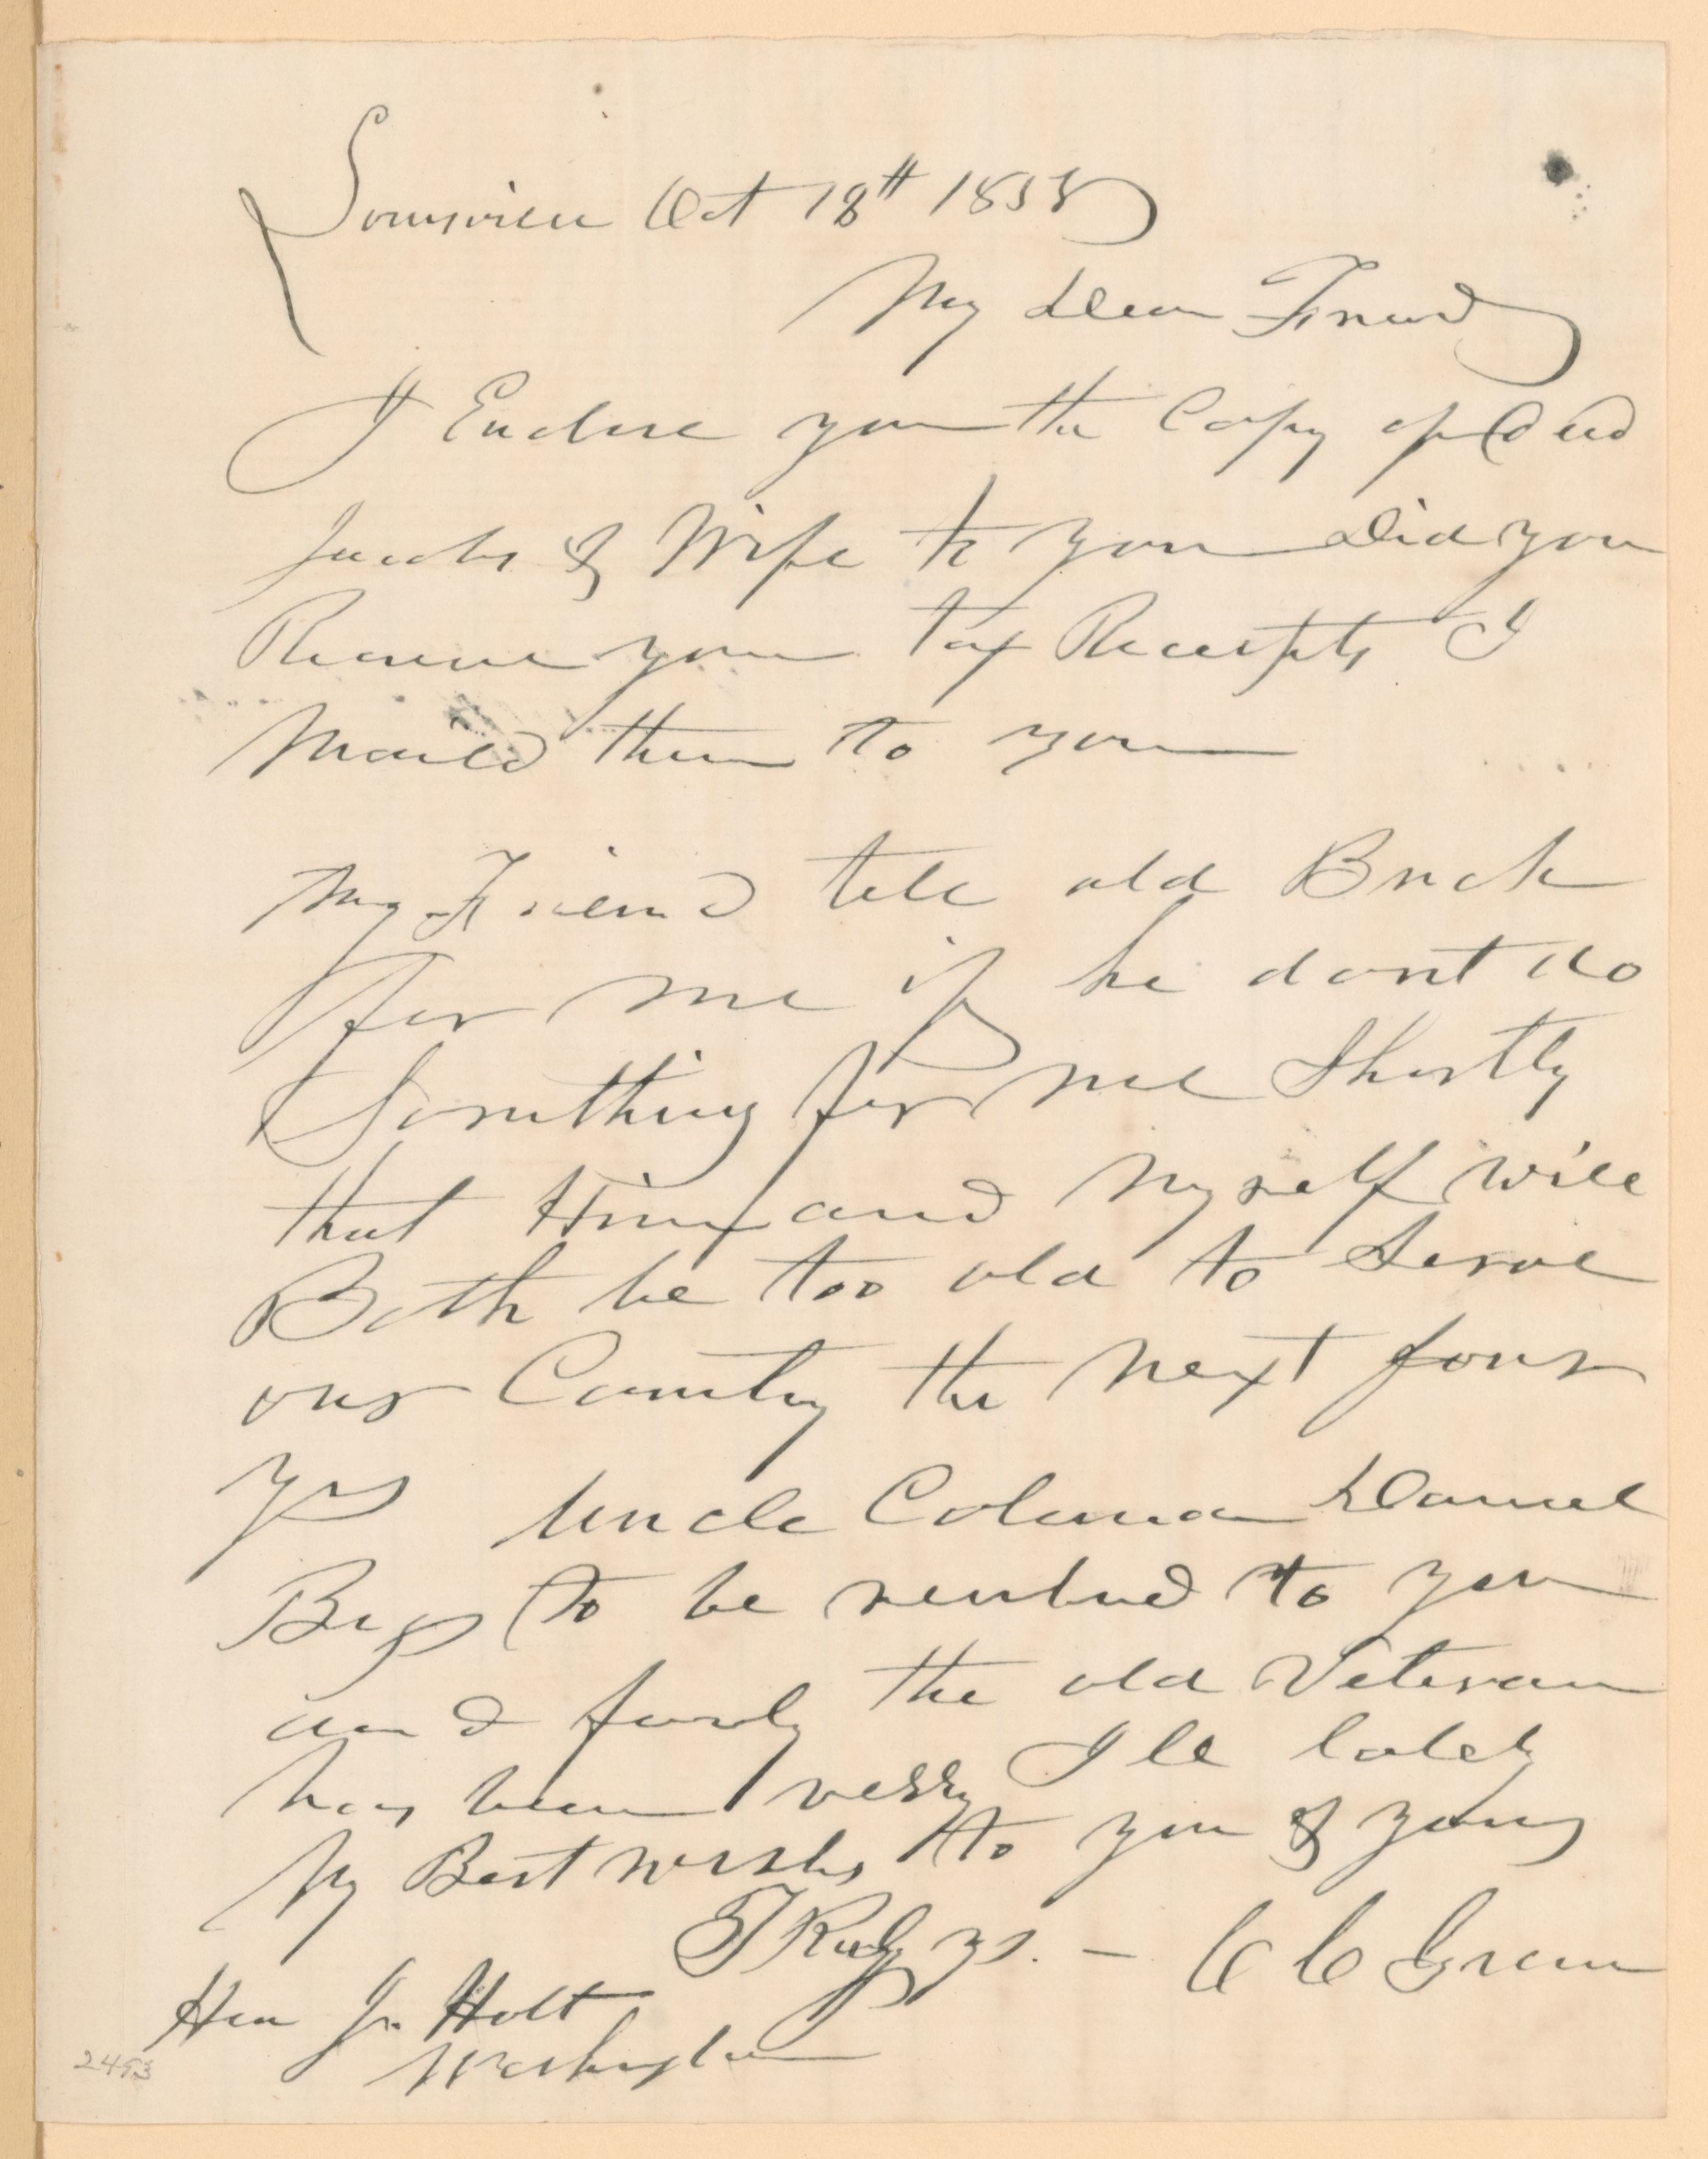 Louisville Oct 18th 1858
My Dear Friend
I Enclose you the Copy of Deed
Jacobs & Wife to you Did you
Receive your tax Receipts I
Mailed them to you
My Friend tell old Buck
for me if he dont do
Something for me Shortly
that Him and Myself will
Both be too old to Serve
our Country the next four
yrs Uncle Coleman Daniel
Begs to be remb'd to you
and family the old Veteran
has been verry Ill lately
My Best wishes to you & yours
TRuly yrs. — C C Green
Hon J. Holt
Washington
2493